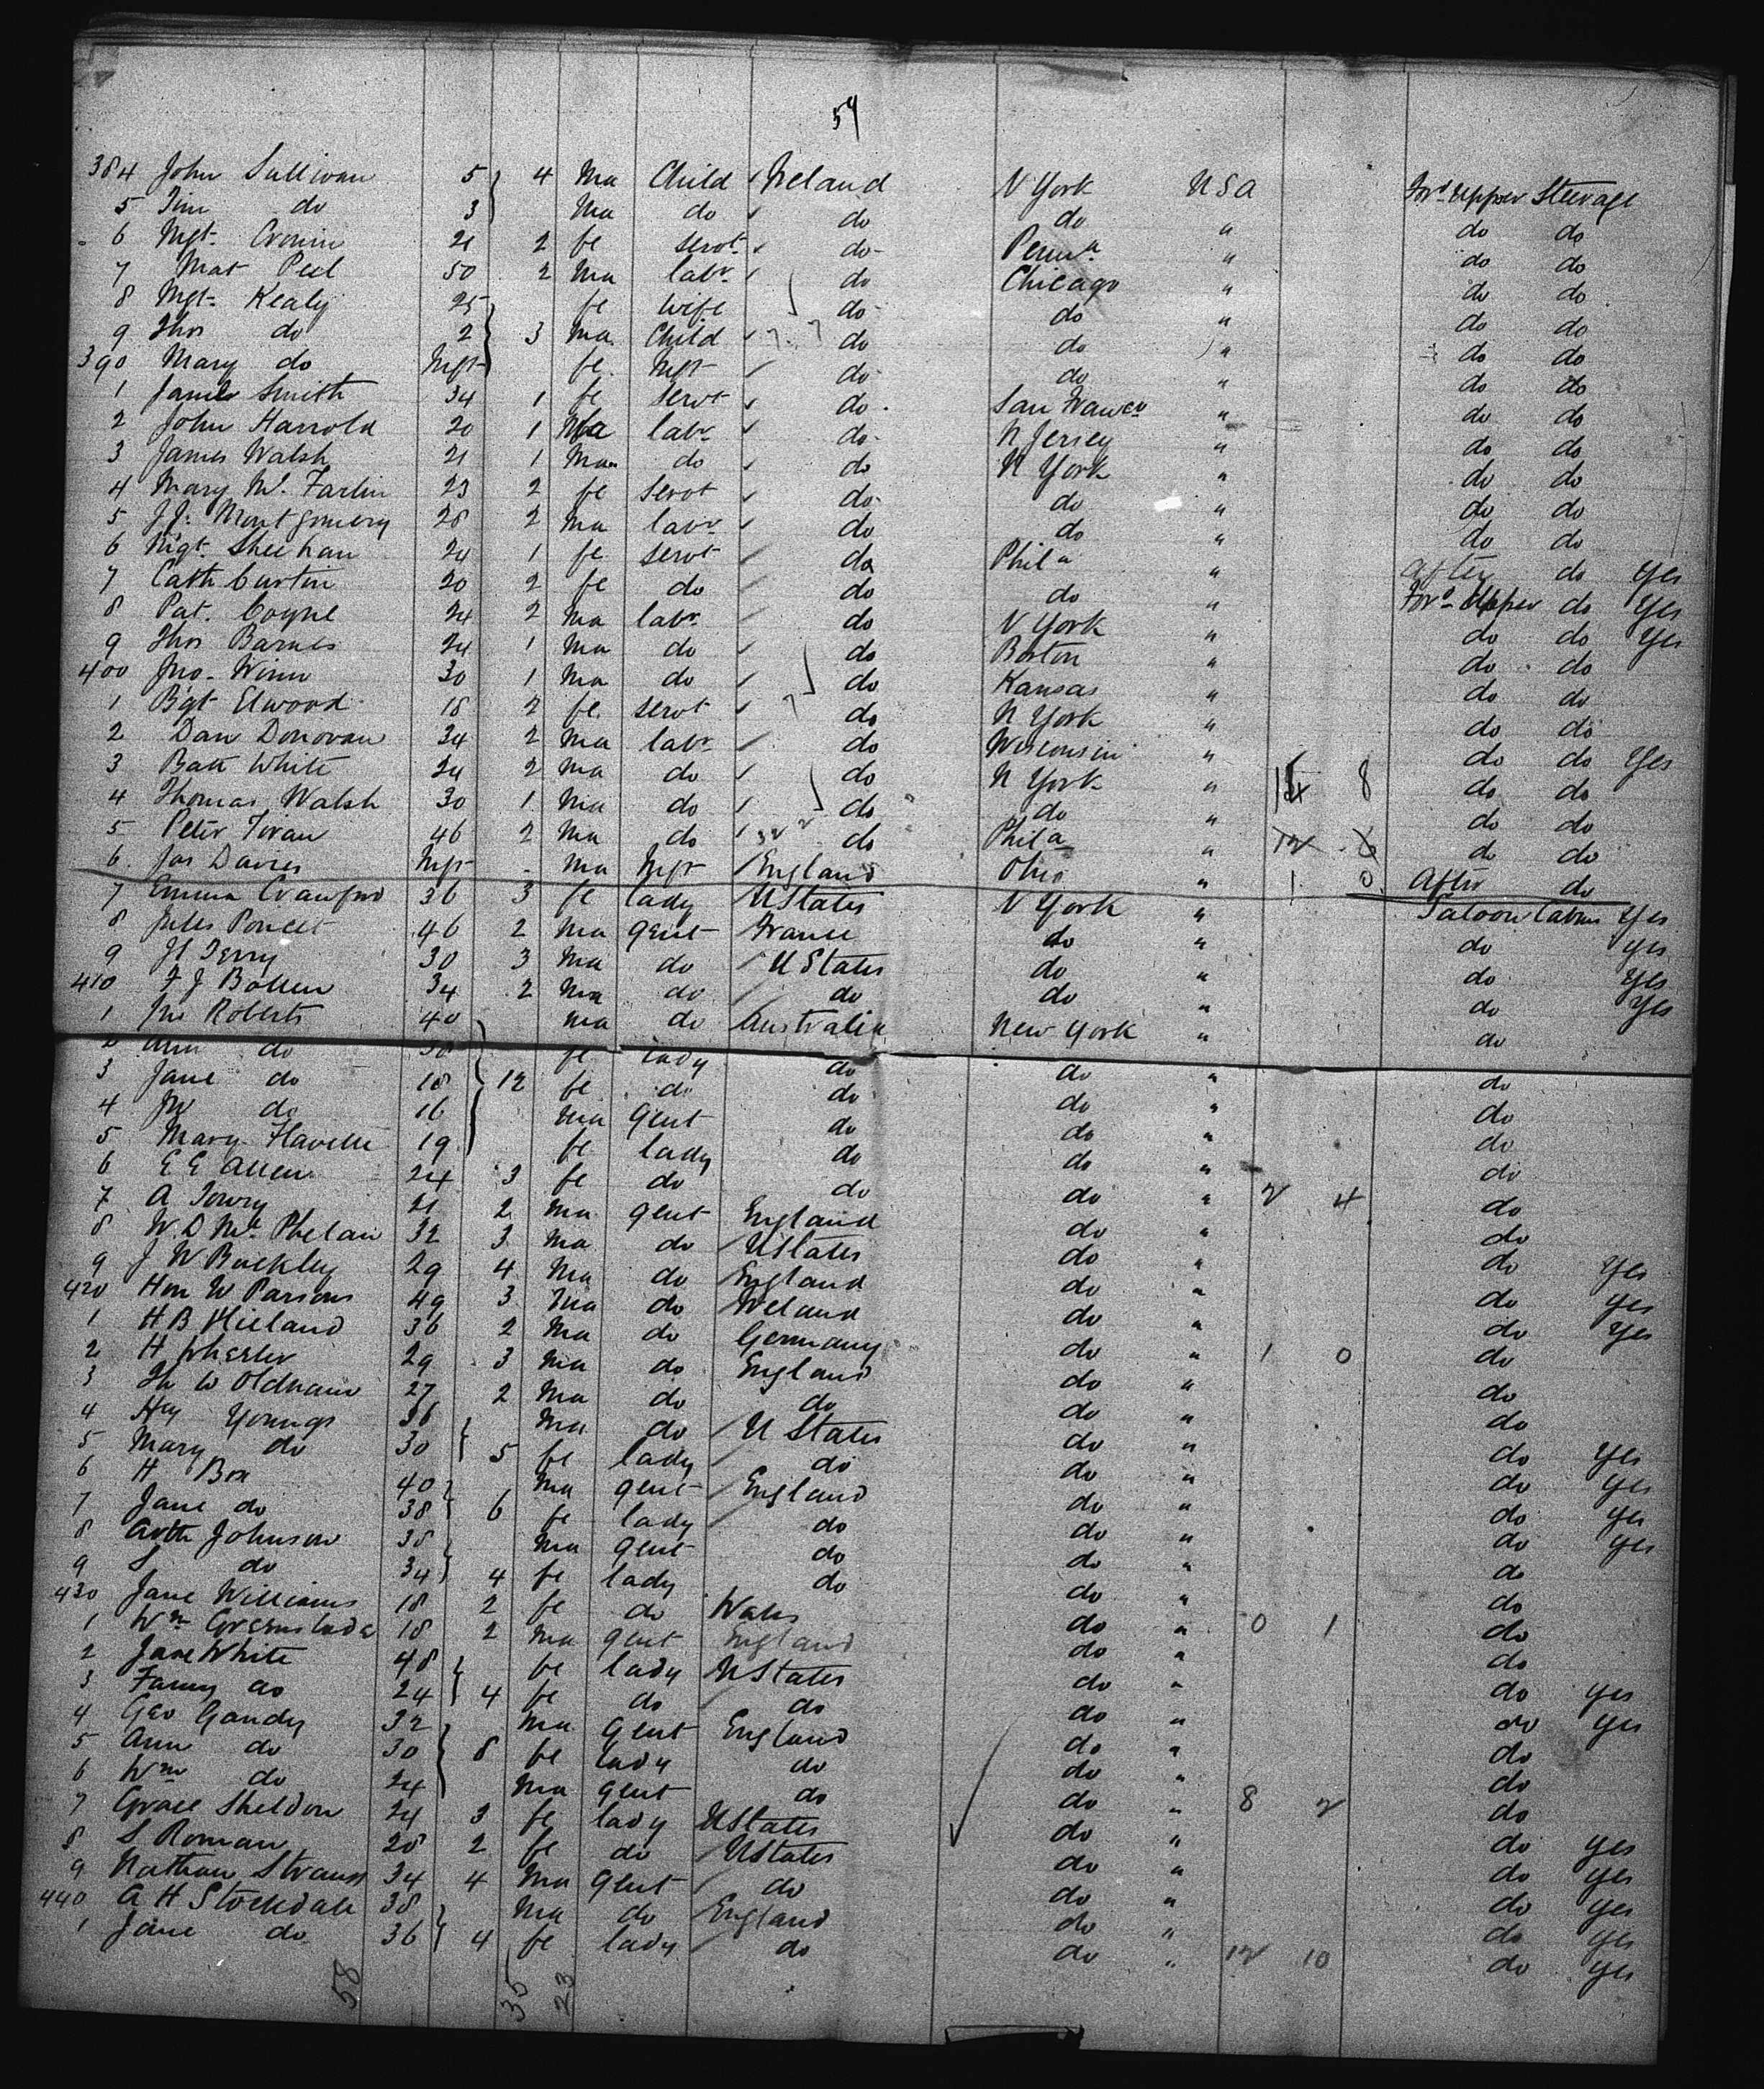 54
384 John Sullivan 5 4 Ma Child Ireland N York USA For'd Upper Steerage
5 Tim do 3 Ma do do do " do do
6 Mgt Cronin 21 2 fe servt do Penna " do do
7 Mat Peel 50 2 Ma labr do Chicago " do do
8 Mgt Kealy 25 fe wife do do " do do
9 Thos do 2 3 Ma Child do do " do do
390 Mary do Inft fe Inft do do " do do
1 James Smith 34 1 fe servt do San Franco " do do
2 John Harrold 20 1 Ma labr do N Jersey " do do
3 James Walsh 21 1 Ma do do N York " do do
4 Mary Mc Farlin 23 2 fe servt do do " do do
5 J J Montgomery 28 2 Ma labr do do " do do
6 Mgt Sheehan 24 1 fe servt do Phila " After do Yes
7 Cath Curtin 20 2 fe do do do " For'd Upper do Yes
8 Pat. Coyne 24 2 Ma labr do N York " do do Yes
9 Thos Barnes 24 1 Ma do do Boston " do do
400 Jno. Winn 30 1 Ma do do Kansas " do do
1 Bgt Elwood 18 2 fe servt do N York " do do
2 Dan Donovan 34 2 Ma labr do Wisconsin " do do Yes
3 Batt White 24 2 Ma do do N York " 8 do do
4 Thomas Walsh 30 1 Ma do do do " do do
5 Peter 46 2 Ma do do Phila " 12 6 do do
6 Jas Davies Inft - Ma Inft England Ohio " 1 0 After do
7 Emma Crawford 36 3 fe lady U States N York " Saloon Cabin Yes
8 Jules Poncet 46 2 Ma gent France do " do Yes
9 Jl Terry 30 3 Ma do U States do " do Yes
410 F J Bollen 34 2 Ma do do do " do Yes
1 Jno Roberts 40 Ma do Australia New York " do
2 Ann do 38 fe lady do do " do
3 Jane do 18 12 fe do do do " do
4 Jno do 16 Ma gent do do " do
5 Mary 19 fe lady do do " do
6 E E Allen 24 3 fe do do do " 2 4 do
7 A Towry 21 2 Ma gent England do " do
8 W. D Mc Phelan 32 3 Ma do U States do " do Yes
9 J W Buckley 29 4 Ma do England do " do Yes
420 Hon W Parsons 49 3 Ma do Ireland do " do Yes
1 H B Hieland 36 2 Ma do Germany do " 1 0 do
2 H 29 3 Ma do England do " do
3 Th W Oldham 27 2 Ma do do do " do
4 Hy Youngs 36 Ma do U States do " do Yes
5 Mary do 30 5 fe lady do do " do Yes
6 H Box 40 Ma gent England do " do Yes
7 Jane do 38 6 fe lady do do " do Yes
8 Arth Johnson 38 Ma gent do do " do
9 S do 34 4 fe lady do do " do
430 Jane Williams 18 2 fe do Wales do " 0 1 do
1 Wm Greenslade 18 2 Ma gent England do " do
2 Jane White 48 fe lady U States do " do Yes
3 Fanny do 24 4 fe do do do " do Yes
4 Geo Gandy 32 Ma gent England do " do
5 Ann do 30 8 fe lady do do " do
6 Wm do 24 Ma gent do do " 8 2 do
7 Grace Sheldon 24 3 fe lady U States do " do Yes
8 S Roman 28 2 fe do U States do " do Yes
9 Nathan Strauss 34 4 Ma gent do do " do Yes
440 A H Stockdale 38 Ma do England do " do Yes
1 Jane do 36 4 fe lady do do " 12 10 do Yes
58 35 23